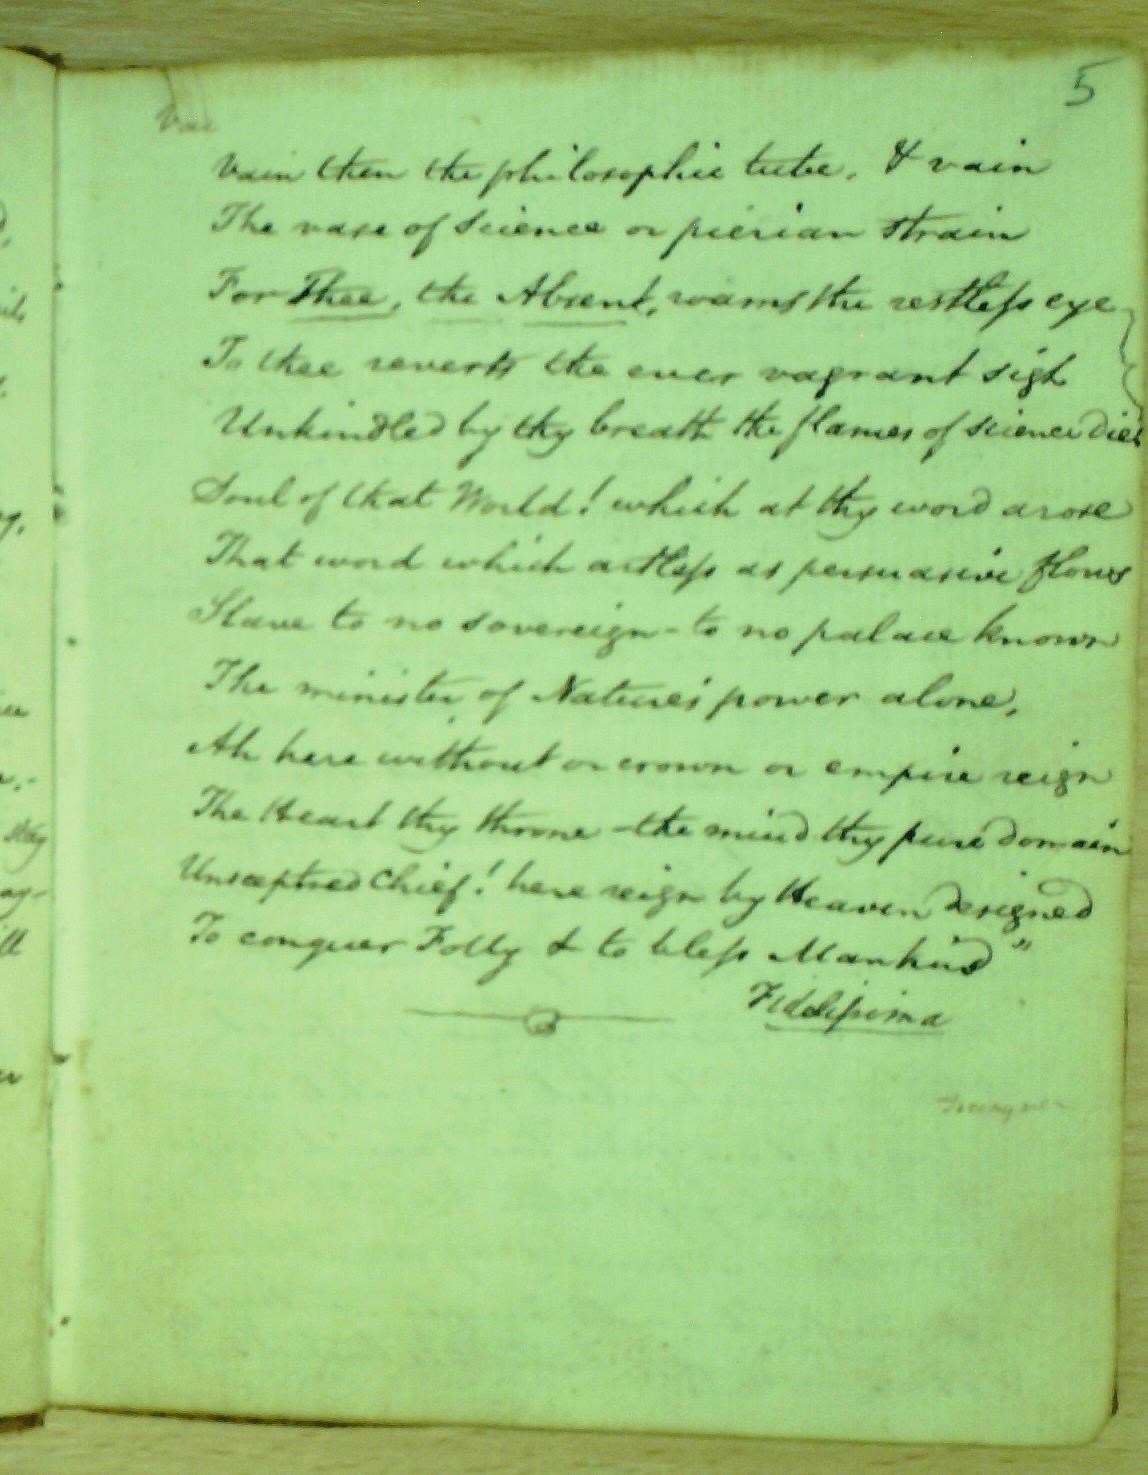 5
Vain then the philosophic tube, & vain
The vase of Science or pierian strain
For Thee, the Absent, roams the restless eye
To thee reverts the ever vagrant sigh
Unkindled by thy breath the flames of science dies
Soul of that World! which at thy word arose
That word which artless as persuasive flows
Slave to no sovereign - to no palace known
The minister of Nature's power alone,
Ah here without or crown or empire reign
The Heart thy throne - the mind thy pure domain
Unsceptred Chief! here reign by Heaven designed
To conquer Folly & to bless Mankind"
Fidelissima